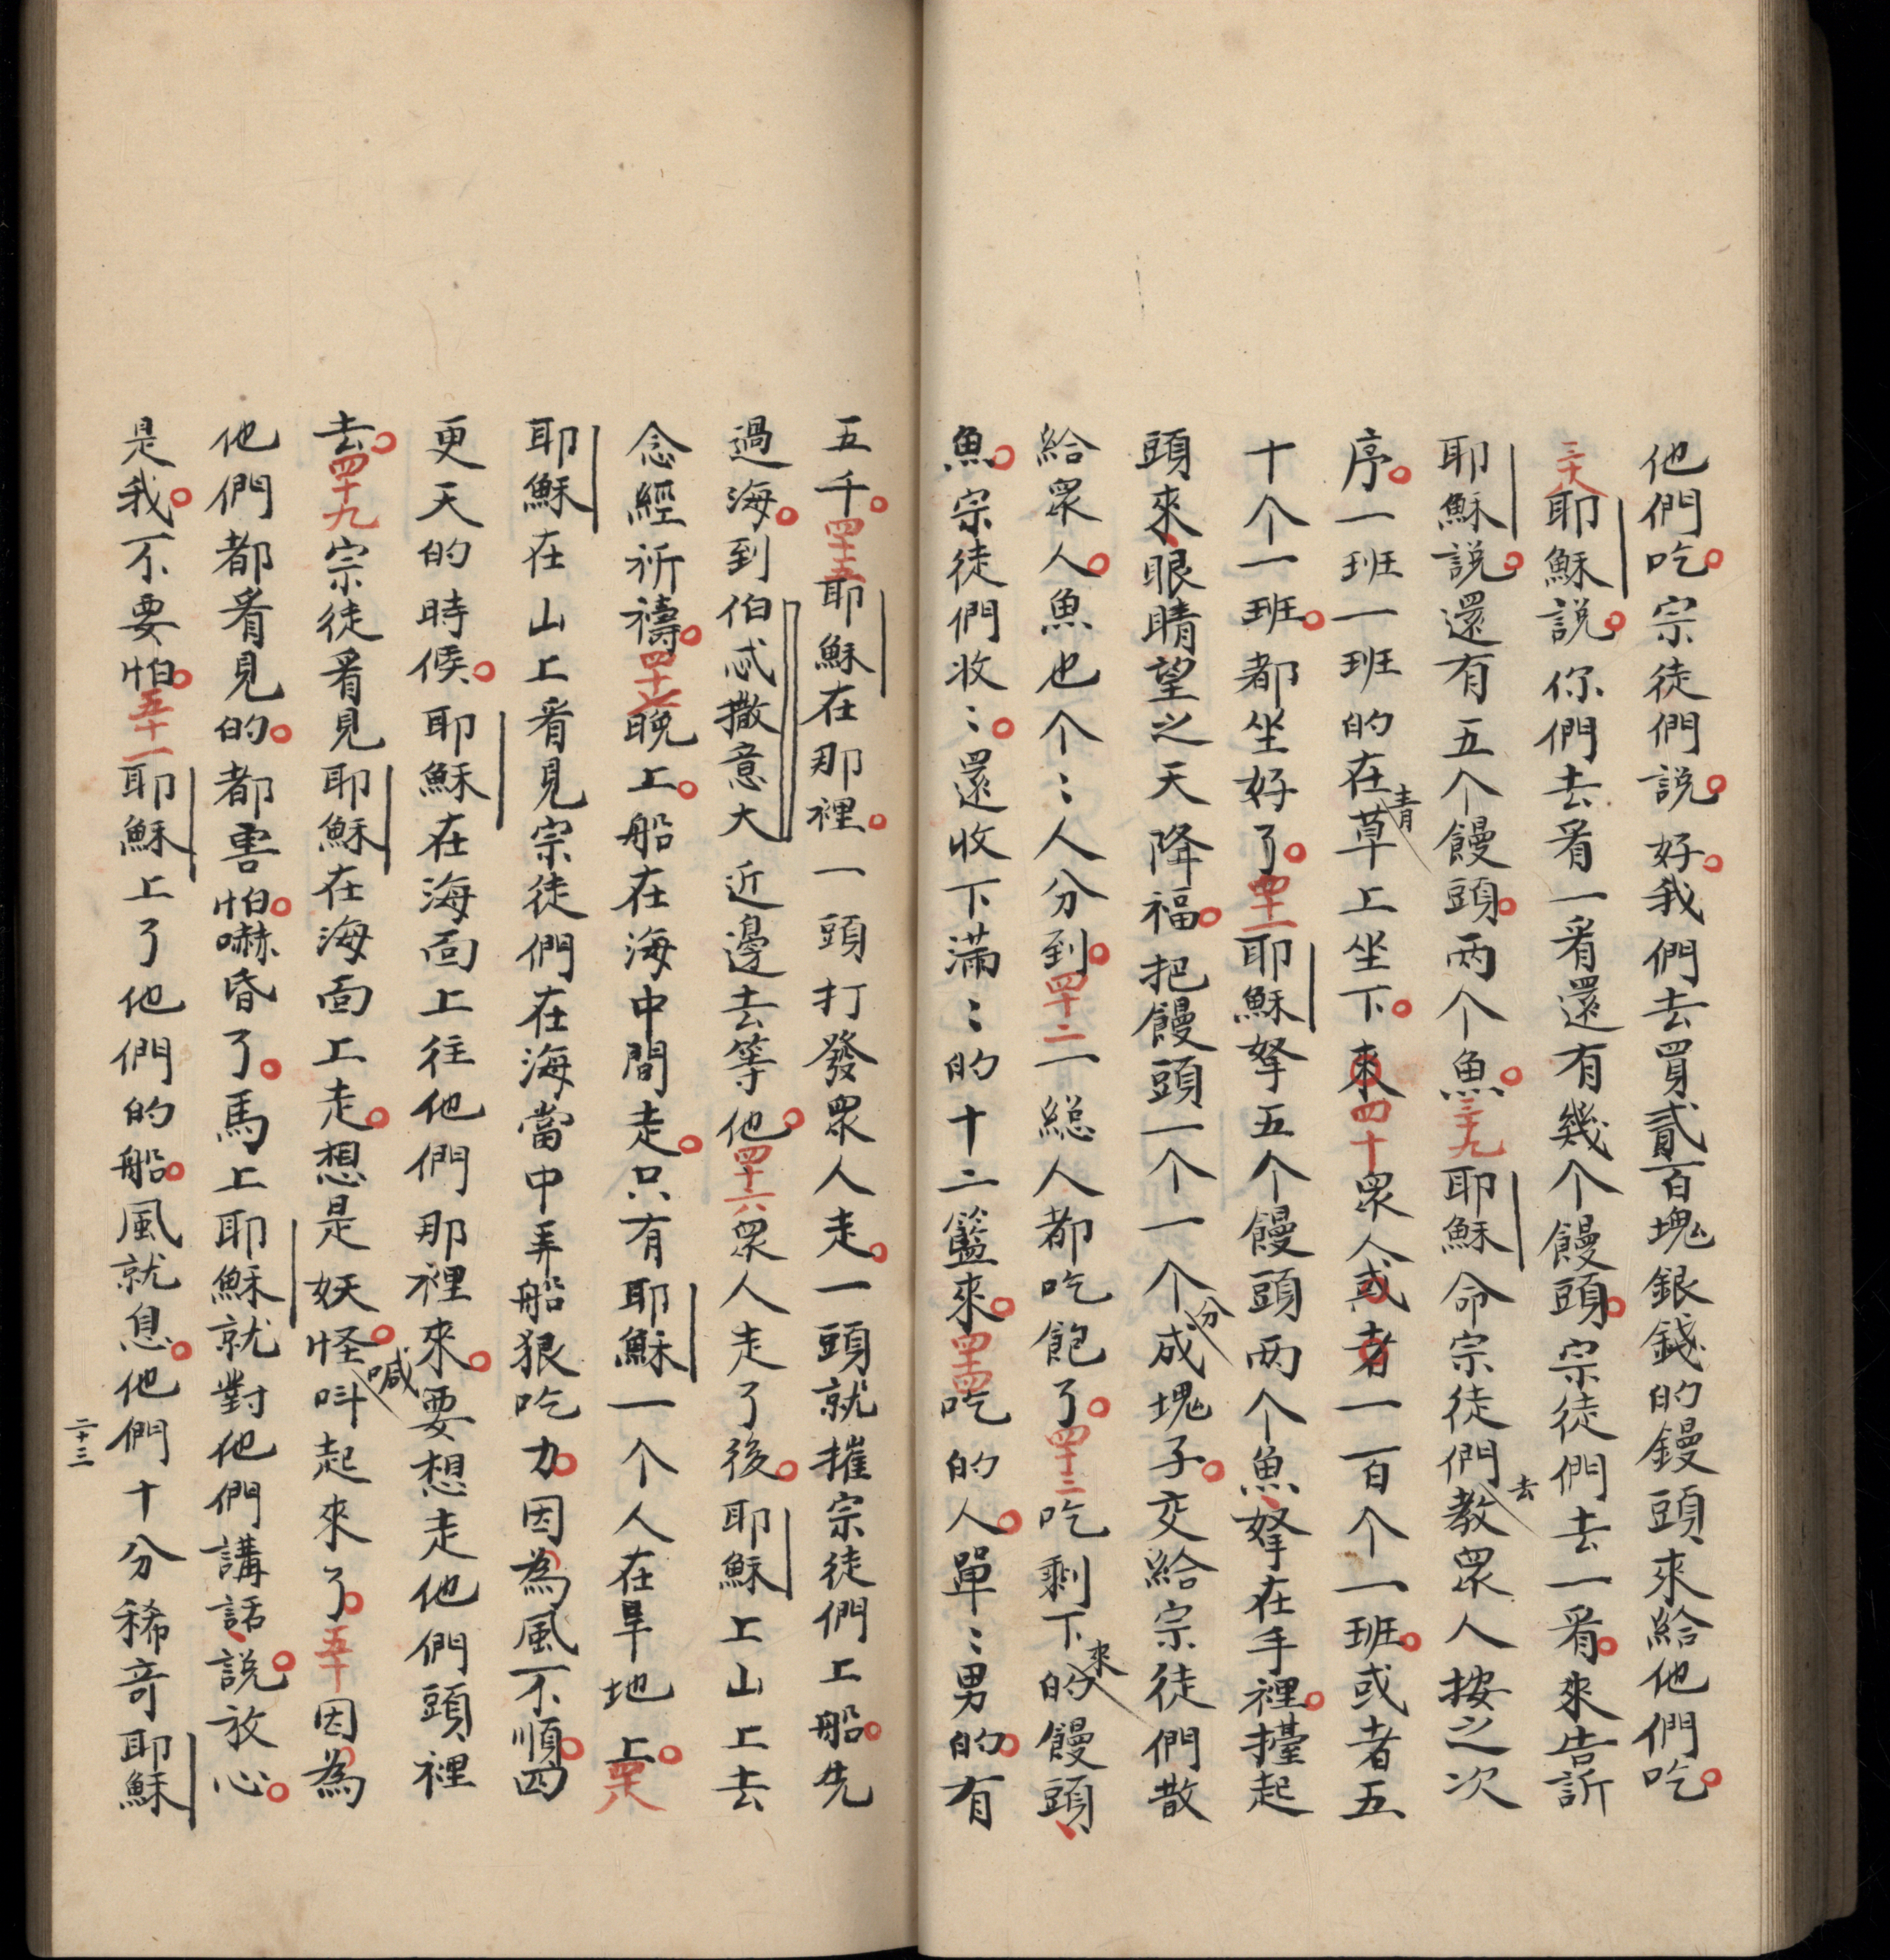 他們吃。宗徒們説。好。我們去買貳百塊銀錢的饅頭來給他們吃。
三十八耶穌説。你們去看一看還有幾个饅頭。宗徒們去一看。來告訴
耶穌説。還有五个饅頭。两个魚。三十九耶穌命宗徒們去教眾人按之次
序。一班一班的在青草上坐下。來四十眾人或者一百个一班。或者五
十个一班。都坐好了。四十一耶穌拏五个饅頭两个魚、拏在手裡。擡起
頭來、眼睛望之天降福。把饅頭一个一个分成塊子。交給宗徒們散
給眾人。魚也个〻人分到。四十二一緫人都吃飽了。四十三吃剩下來的饅頭、
魚。宗徒們收〻。還收下滿〻的十二籃來。四十四吃的人。單〻男的。有
五千。四十五耶穌在那裡。一頭打發眾人走。一頭就摧宗徒們上船。先
過海。到伯忒撒意大近邊去等他。四十六眾人走了後。耶穌上山上去
念經祈禱。四十七晩上。船在海中間走。只有耶穌一个人在旱地上。四十八
耶穌在山上看見宗徒們在海當中弄船狠吃力。因為風不順。四
更天的時候。耶穌在海面上往他們那裡來。要想走他們頭裡
去。四十九宗徒看見耶穌在海面上走。想是妖怪。喊呌起來了。五十因為
他們都看見的。都害怕。嚇昏了。馬上耶穌就對他們講話、説。放心。
是我。不要怕。五十一耶穌上了他們的船。風就息。他們十分稀奇耶穌
二十三